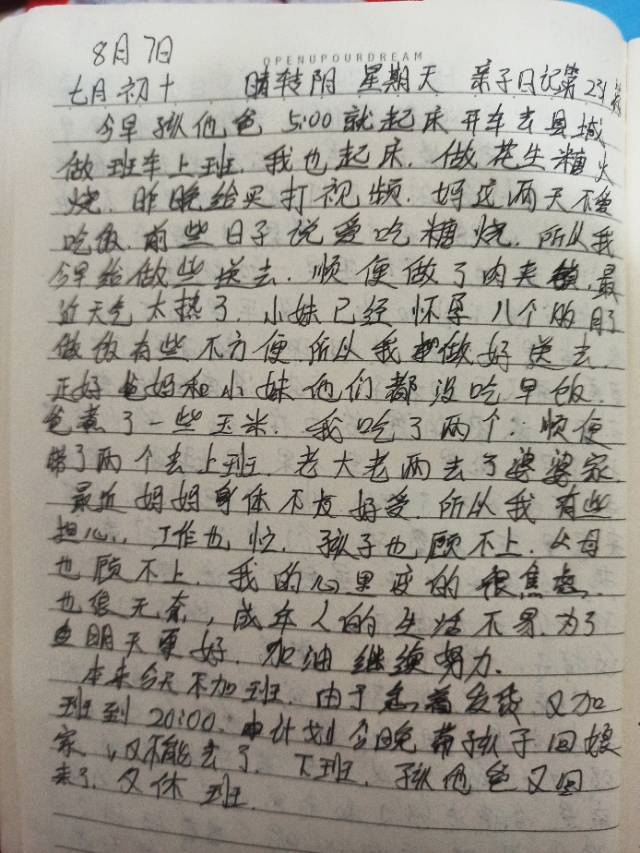 8月7日
OPENUPOURDREAM
七月初十 晴转阴 星期天 亲子日记第231篇
今早孩他爸5:00就起床开车去县城
做班车上班.我也起床.做花生糖火
烧.昨晚给买打视频.妈这两天不爱
吃饭.前些日子说爱吃糖烧.所以我
今早给做些送去.顺便做了肉夹馍.最
近天气太热了.小妹已经怀孕八个的月了
做饭有些不方便.所以我把做好送去.
正好爸妈和小妹他们都没吃早饭.
爸煮了一些玉米.我吃了两个.顺便
带了两个去上班.老大老两去了婆婆家.
最近妈妈身体不太好受.所以我有些
担心.工作也忙.孩子也顾不上.父母
也顾不上.我的心里变的很焦虑.
也很无奈,成年人的生活不易.为了
明天更好.加油继续努力.
本来今天不加班.由于急着发货.又加
班到20:00.计划今晚带孩子回娘
家.又不能去了.下班.孩他爸又回
来了.又休班.